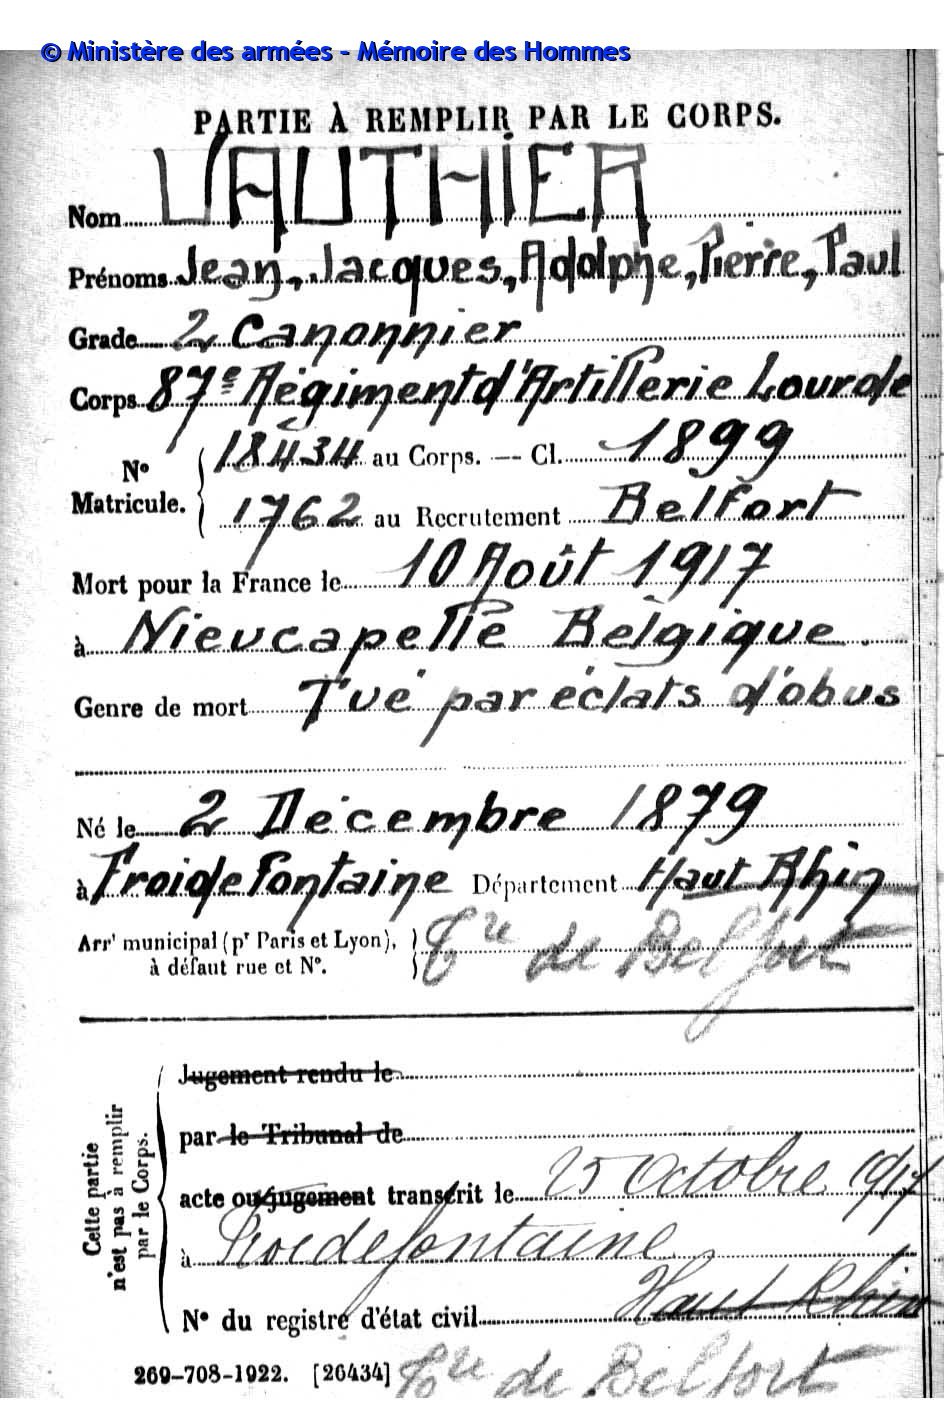 © Ministère des armées - Mémoire des Hommes
PARTIE À REMPLIR PAR LE CORPS.
Nom VAUTHIER
Prénoms Jean, Jacques, Adolphe, Pierre, Paul
Grade 2 Canonnier
Corps 87e Régiment d'Artillerie Lourde
18434 au Corps. — Cl. 1899
No Matricule.
1762 au Recrutement Belfort
Mort pour la France le 10 Août 1917
à Nieucapelle Belgique.
Genre de mort Tué par éclats d'obus
Né le 2 Décembre 1879
à Froidefontaine Département Haut Rhin
Arrt municipal (pr Paris et Lyon), à défaut rue et No. Tre de Belfort
Cette partie n'est pas à remplir par le Corps.
Jugement rendu le
par le Tribunal de
acte ou jugement transcrit le 25 Octobre 1917
à Froidefontaine
No du registre d'état civil Haut Rhin
269-708-1922. [26434] Tre de Belfort